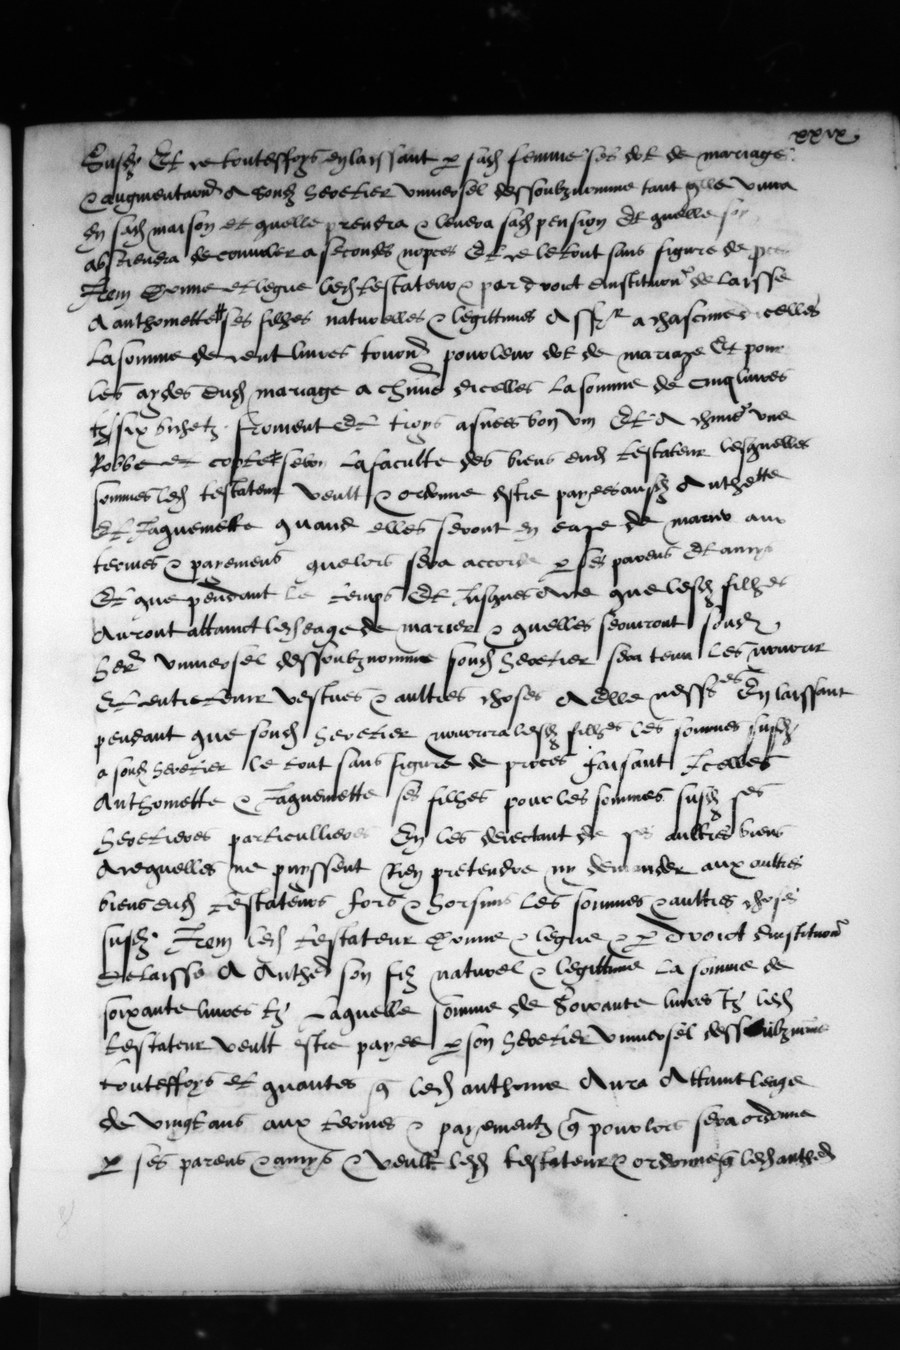 xxix
Susd Et ce touteffoys en laissant p sad femme ses dot de mariage
& augmentacion A soud heretier universel dessoubz nomme tant qlle vivra
En sad maison et quelle prendra & levera sad pension Et quelle
abstiendra de convoler a secondes nopces Et ce le tout sans figure de
Item donne et legue led testateur & par droict dinstitution delaisse
A anthomette ses filhes naturelles & legittimes A chascune dicelles
La somme de cent livres tourn pour leur dot de mariage Et pour
les aydes dud mariage a chune dicelles La somme de cinq livres
tz six bichetz froment Et troys asnees bon vin Et A chune une
Robbe et cotte selon La faculte des biens dud testateur lesquelles
sommes led testateur veult & ordonne estre payees ausd Anthette
Et Jaquemette quand elles seront en eaige de marier aux
termes & payemens que lors sera accorde p ses parens Et amys
Et que pendant le temps Et jusques Ace que lesd filhes
Auront attainct led eage de marier & quelles serviront soud
her universel dessoubz nomme soud heretier sera tenu les nourrir
Et entretenir vestues & aultres choses A elle necess En laissant
pendant que soud heretier nourrira lesd filhes les sommes susd
a soud heretier le tout sans figure de proces faisant Icelles
Anthomette & Jaquemette ses filhes pour les sommes susd ses
heretieres particullieres En les deiectant de ses aultres biens
Acequelles ne puyssent Rien pretendre ny demander aux aultres
biens dud testateurs fors & horsmis les sommes & aultres choses
susd Item led testateur donne & legue & p droict dinstitution
Delaisse A Anthe son filz naturel & legittime La somme de
soixante livres tz Laquelle somme de Soixante livres tz led
testateur veult estre payee p son heretier universel dessoubz nomme
touteffoys et quantes q led anthoine Aura Attainct leage
de vingt ans aux termes & payementz q pour lors sera ordonne
p ses parens & amys & Veult led testateur & ordonne q led anthe